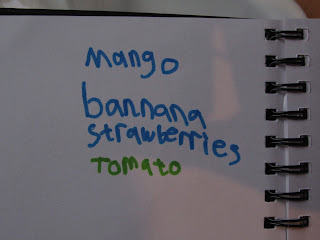 mango
bannana
strawberries
Tomato